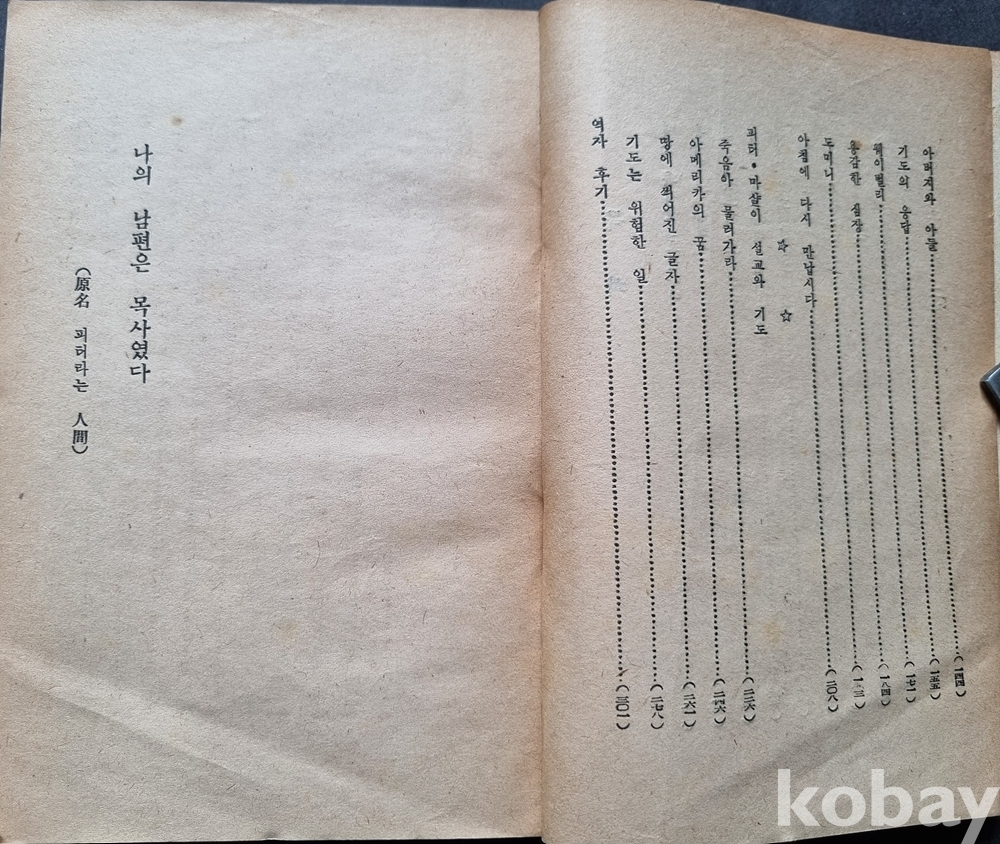 아버지와 아들……(一四四)
기도의 응답……(一五五)
웨이벌리……(一七一)
용감한 심장……(一八四)
아침에 다시 만납시다……(二〇八)
☆ ☆
피터・마샬의 설교와 기도
죽음아 물러가라……(二二六)
아메리카의 꿈……(二四六)
땅에 찍어진 글자……(二六一)
기도는 위험한 일……(二七八)
역자 후기……(三〇一)
나의 남편은 목사였다
(原名 피터라는 人間)
kobay